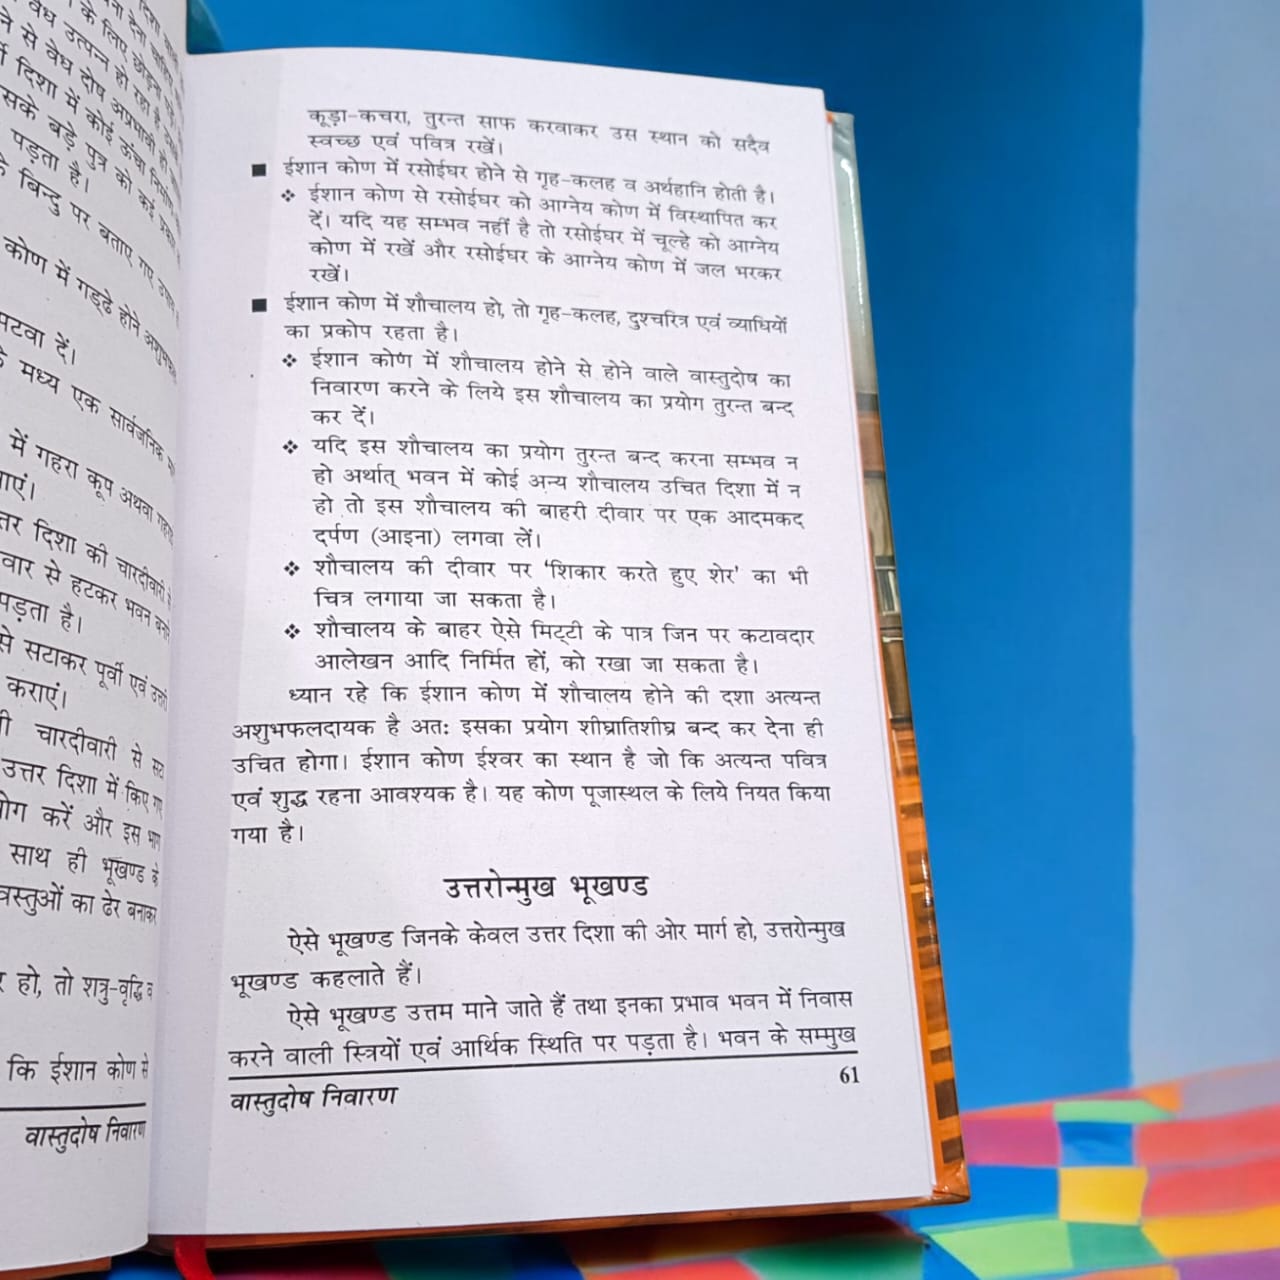 दिशा वाले
देना चाहिए
के लिए छोड़ना
वेध उत्पन्न हो रहा है
ने से वेध दोष अप्रभावी हो
दिशा में कोई ऊंचा निर्माण
सके बड़े पुत्र को कई प्रकार
पड़ता है।
के बिन्दु पर बताए गए उपाय
कोण में गड्ढे होने अशुभफल
पटवा दें।
के मध्य एक सार्वजनिक
में गहरा कूप अथवा गहरा
एं।
तर दिशा की चारदीवारी से
वार से हटकर भवन बनाने
पड़ता है।
से सटाकर पूर्वी एवं उत्तरी
कराएं।
ी चारदीवारी से सटा
उत्तर दिशा में किए गए
योग करें और इस भाग
साथ ही भूखण्ड के
वस्तुओं का ढेर बनाकर
र हो, तो शत्रु-वृद्धि व
कि ईशान कोण से
वास्तुदोष निवारण
कूड़ा-कचरा, तुरन्त साफ करवाकर उस स्थान को सदैव
स्वच्छ एवं पवित्र रखें।
■ ईशान कोण में रसोईघर होने से गृह-कलह व अर्थहानि होती है।
❖ ईशान कोण से रसोईघर को आग्नेय कोण में विस्थापित कर
दें। यदि यह सम्भव नहीं है तो रसोईघर में चूल्हे को आग्नेय
कोण में रखें और रसोईघर के आग्नेय कोण में जल भरकर
रखें।
■ ईशान कोण में शौचालय हो, तो गृह-कलह, दुश्चरित्र एवं व्याधियों
का प्रकोप रहता है।
❖ ईशान कोण में शौचालय होने से होने वाले वास्तुदोष का
निवारण करने के लिये इस शौचालय का प्रयोग तुरन्त बन्द
कर दें।
❖ यदि इस शौचालय का प्रयोग तुरन्त बन्द करना सम्भव न
हो अर्थात् भवन में कोई अन्य शौचालय उचित दिशा में न
हो तो इस शौचालय की बाहरी दीवार पर एक आदमकद
दर्पण (आइना) लगवा लें।
❖ शौचालय की दीवार पर ‘शिकार करते हुए शेर’ का भी
चित्र लगाया जा सकता है।
❖ शौचालय के बाहर ऐसे मिट्टी के पात्र जिन पर कटावदार
आलेखन आदि निर्मित हों, को रखा जा सकता है।
ध्यान रहे कि ईशान कोण में शौचालय होने की दशा अत्यन्त
अशुभफलदायक है अतः इसका प्रयोग शीघ्रातिशीघ्र बन्द कर देना ही
उचित होगा। ईशान कोण ईश्वर का स्थान है जो कि अत्यन्त पवित्र
एवं शुद्ध रहना आवश्यक है। यह कोण पूजास्थल के लिये नियत किया
गया है।
उत्तरोन्मुख भूखण्ड
ऐसे भूखण्ड जिनके केवल उत्तर दिशा की ओर मार्ग हो, उत्तरोन्मुख
भूखण्ड कहलाते हैं।
ऐसे भूखण्ड उत्तम माने जाते हैं तथा इनका प्रभाव भवन में निवास
करने वाली स्त्रियों एवं आर्थिक स्थिति पर पड़ता है। भवन के सम्मुख
वास्तुदोष निवारण 61